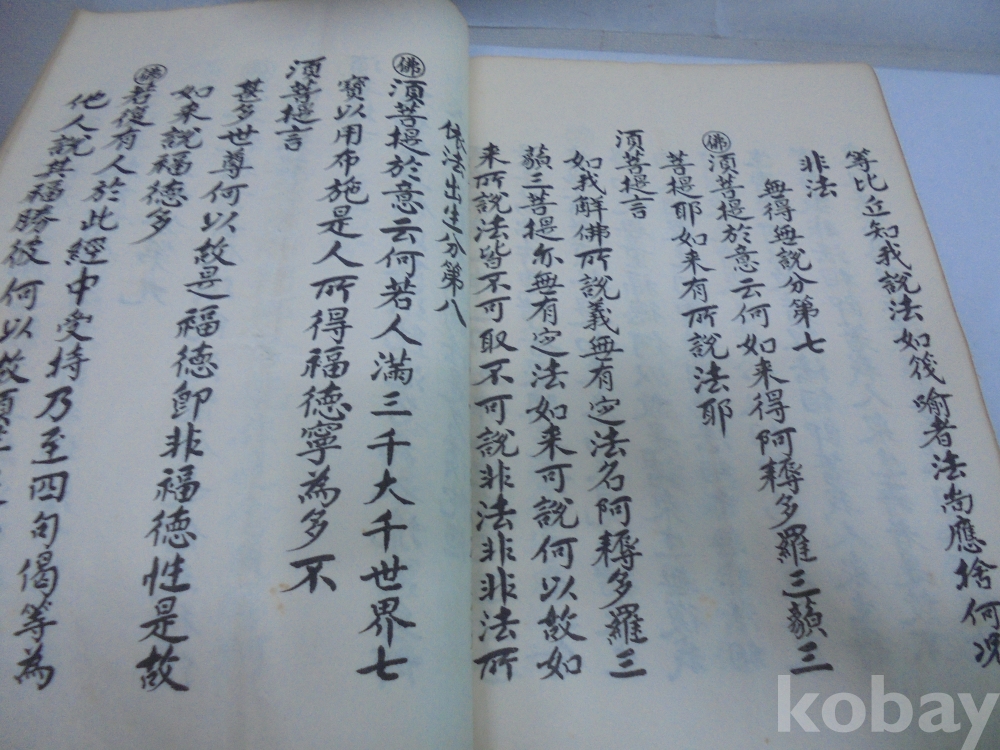 等比丘知我說法如筏喻者法尚應捨何况
非法
無得無說分第七
佛 須菩提於意云何如来得阿耨多羅三藐三
菩提耶如来有所說法耶
須菩提言
如我解佛所說義無有定法名阿耨多羅三
藐三菩提亦無有定法如来可說何以故如
来所說法皆不可取不可說非法非非法所
依法出生分第八
佛 須菩提於意云何若人滿三千大千世界七
寶以用布施是人所得福德寧為多不
須菩提言
甚多世尊何以故是福德卽非福德性是故
如来說福德多
佛 若復有人於此經中受持乃至四句偈等為
他人說其福勝彼何以故須菩
kobay